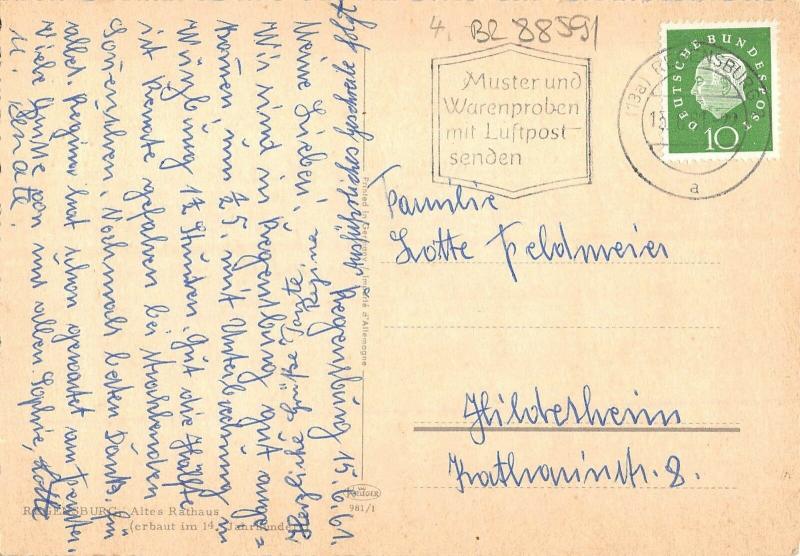 4. BR 88591
Muster und
Warenproben
mit Luftpost
senden
(13a) REGENSBURG
a
DEUTSCHE BUNDESPOST
10
Familie
Lotte Feldmeier
Hildesheim
Katharinstr. 8.
Ausführliches Geschreibe folgt
Regensburg 15.6.61.
Meine Lieben!
Wir sind in Regensburg gut ange=
kommen, um ½5 mit Unterbrechung in
Würzburg 1½ Stunden. Gut die Hälfte
ist Renate gefahren bei strahlenden
Nochmals besten Dank für
alles. Regina hat schon gewartet am Fenster.
Viele Grüße von uns allen. Sophie, Lotte
u. Renate.
Herzliche Grüße
Regina
Printed in Germany / Imprimé d'Allemagne
KRÜGER
981/1
REGENSBURG: Altes Rathaus
(erbaut im 14. Jahrhundert)